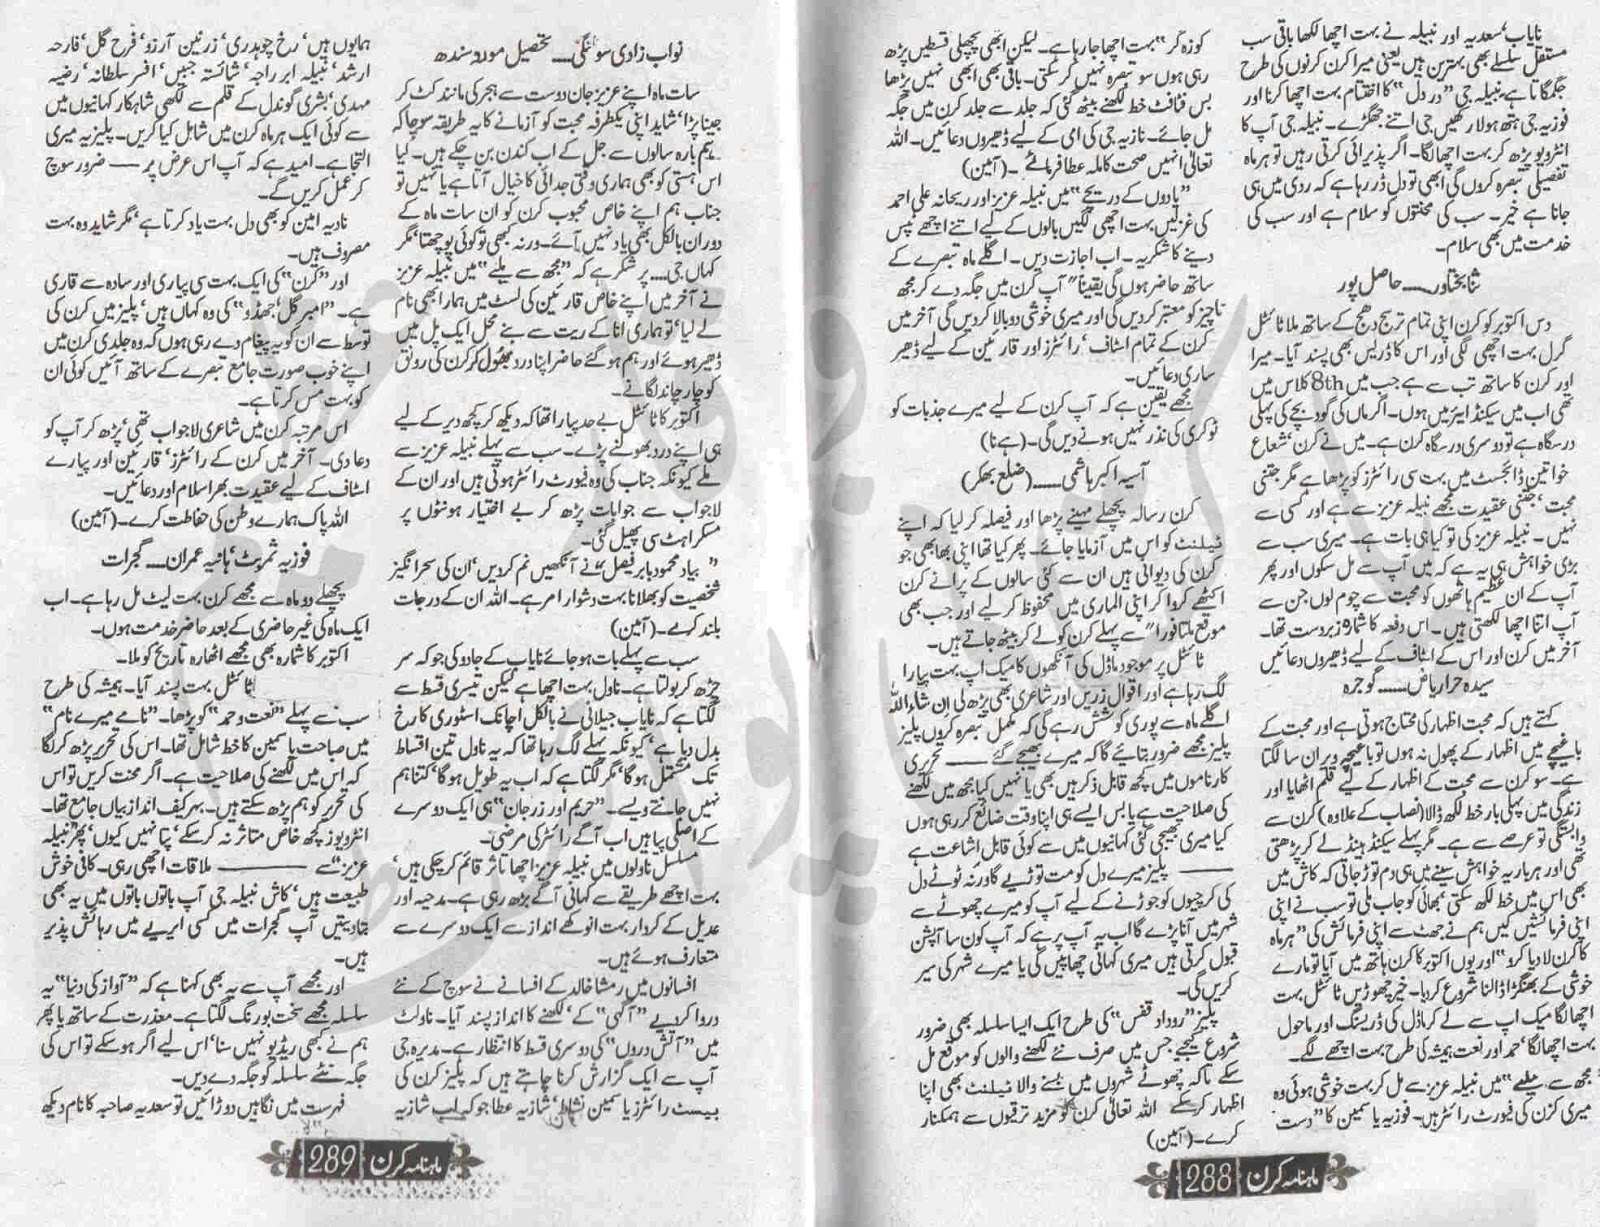 نایاب‘ سعدیہ اور نبیلہ نے بہت اچھا لکھا باقی سب
مستقل سلسلے بھی بہترین ہیں یعنی میرا کرن کرنوں کی طرح
جگمگاتا ہے۔ نبیلہ جی ”در دل“ کا اختتام بہت اچھا کرنا اور
فوزیہ جی ہتھ ہولا رکھیں جی اتنے جھگڑے۔ نبیلہ جی آپ کا
انٹرویو پڑھ کر بہت اچھا لگا۔ اگر پذیرائی کرتی رہیں تو ہر ماہ
تفصیلی تبصرہ کروں گی ابھی تو دل ڈر رہا ہے کہ ردی میں ہی
جانا ہے خیر۔ سب کی محنتوں کو سلام ہے اور سب کی
خدمت میں بھی سلام۔
ثنا بختاور۔۔۔۔ حاصل پور
دس اکتوبر کو کرن اپنی تمام تر سج دھج کے ساتھ ملا ٹائٹل
گرل بہت اچھی لگی اور اس کا ڈریس بھی پسند آیا۔ میرا
اور کرن کا ساتھ تب سے ہے جب میں 8th کلاس میں
تھی اب میں سیکنڈ ایئر میں ہوں۔ اگر ماں کی گود بچے کی پہلی
درسگاہ ہے تو دوسری درسگاہ کرن ہے۔ میں نے کرن‘ شعاع
خواتین ڈائجسٹ میں بہت سی رائٹرز کو پڑھا ہے مگر جتنی
محبت‘ جتنی عقیدت مجھے نبیلہ عزیز سے ہے اور کسی سے
نہیں۔ نبیلہ عزیز کی تو کیا ہی بات ہے۔ میری سب سے
بڑی خواہش ہی یہ ہے کہ میں آپ سے مل سکوں اور پھر
آپ کے ان عظیم ہاتھوں کو محبت سے چوم لوں جن سے
آپ اتنا اچھا لکھتی ہیں۔ اس دفعہ کا شمارہ زبردست تھا۔
آخر میں کرن اور اس کے اسٹاف کے لیے ڈھیروں دعائیں
سیدہ حرا ریاض۔۔۔۔ گوجرہ
کہتے ہیں کہ محبت اظہار کی محتاج ہوتی ہے اور محبت کے
باغیچے میں اظہار کے پھول نہ ہوں تو باغیچہ ویران سا لگتا
ہے۔ سو کرن سے محبت کے اظہار کے لیے قلم اٹھایا اور
زندگی میں پہلی بار خط لکھ ڈالا (نصاب کے علاوہ) کرن سے
وابستگی تو عرصے سے ہے۔ مگر پہلے سیکنڈ ہینڈ لے کر پڑھتی
تھی اور ہر بار یہ خواہش سینے میں ہی دم توڑ جاتی کہ کاش میں
بھی اس میں خط لکھ سکتی بھائی کو جاب ملی تو سب نے اپنی
اپنی فرمائشیں کیں ہم نے جھٹ سے اپنی فرمائش کی ”ہر ماہ
کا کرن لا دیا کرو“ اور یوں اکتوبر کا کرن ہاتھ میں آیا تو مارے
خوشی کے بھنگڑا ڈالنا شروع کر دیا۔ خیر چھوڑیں ٹائٹل بہت
اچھا لگا میک اپ سے لے کر ماڈل کی ڈریسنگ اور ماحول
بہت اچھا لگا‘ حمد اور نعت ہمیشہ کی طرح بہت اچھے لگے۔
مجھ سے ملیے“ میں نبیلہ عزیز سے مل کر بہت خوشی ہوئی وہ
میری کزن کی فیورٹ رائٹر ہیں۔ فوزیہ یاسمین کا ”دست
کوزہ گر“ بہت اچھا جا رہا ہے۔ لیکن ابھی پچھلی قسطیں پڑھ
رہی ہوں سو تبصرہ نہیں کر سکتی۔ باقی بھی ابھی نہیں پڑھا
بس فٹافٹ خط لکھنے بیٹھ گئی کہ جلد سے جلد کرن میں جگہ
مل جائے۔ نازیہ جی کی امی کے لیے ڈھیروں دعائیں۔ اللہ
تعالیٰ انہیں صحت کاملہ عطا فرمائے۔ (آمین)
”یادوں کے دریچے“ میں نبیلہ عزیز اور ریحانہ علی احمد
کی غزلیں بہت اچھی لگیں بالوں کے لیے اتنے اچھے ٹپس
دینے کا شکریہ۔ اب اجازت دیں۔ اگلے ماہ تبصرے کے
ساتھ حاضر ہوں گی یقیناً آپ کرن میں جگہ دے کر مجھ
ناچیز کو معتبر کر دیں گی اور میری خوشی دوبالا کر دیں گی آخر میں
کرن کے تمام اسٹاف‘ رائٹرز اور قارئین کے لیے ڈھیر
ساری دعائیں۔
مجھے یقین ہے کہ آپ کرن کے لیے میرے جذبات کو
ٹوکری کی نذر نہیں ہونے دیں گی۔ (ہے نا)
آسیہ اکبر ہاشمی۔۔۔۔ (ضلع بھکر)
کرن رسالہ پچھلے مہینے پڑھا اور فیصلہ کر لیا کہ اپنے
ٹیلنٹ کو اس میں آزمایا جائے۔ پھر کیا تھا اپنی بھابھی جو
کرن کی دیوانی ہیں ان سے کئی سالوں کے پرانے کرن
اکٹھے کروا کر اپنی الماری میں محفوظ کر لیے اور جب بھی
موقع ملتا فوراً سے پہلے کرن کو لے کر بیٹھ جاتے ہیں۔
ٹائٹل پر موجود ماڈل کی آنکھوں کا میک اپ بہت پیارا
لگ رہا ہے اور اقوال زریں اور شاعری بھی پڑھ لی ان شاء اللہ
اگلے ماہ سے پوری کوشش رہے گی کہ مکمل تبصرہ کروں پلیز
پلیز مجھے ضرور بتائیے گا کہ میرے بھیجے گئے ۔۔۔ تحریری
کارناموں میں کچھ قابل ذکر ہیں بھی یا نہیں کیا مجھ میں لکھنے
کی صلاحیت ہے یا بس ایسے ہی اپنا وقت ضائع کر رہی ہوں
کیا میری بھیجی گئی کہانیوں میں سے کوئی قابل اشاعت ہے
۔۔۔ پلیز میرے دل کو مت توڑیے گا ورنہ ٹوٹے دل
کی کرچیوں کو جوڑنے کے لیے آپ کو میرے چھوٹے سے
شہر میں آنا پڑے گا اب یہ آپ پر ہے کہ آپ کون سا آپشن
قبول کرتی ہیں میری کہانی چھاپیں گی یا میرے شہر کی سیر
کریں گی۔
پلیز ”روداد قفس“ کی طرح ایک ایسا سلسلہ بھی ضرور
شروع کیجیے جس میں صرف نئے لکھنے والوں کو موقع مل
سکے تاکہ چھوٹے شہروں میں بسنے والا ٹیلنٹ بھی اپنا
اظہار کر سکے اللہ تعالیٰ کرن کو مزید ترقیوں سے ہمکنار
کرے۔ (آمین)
ماہنامہ کرن 288
نواب زادی سولنگی۔۔۔۔ تحصیل مورو سندھ
سات ماہ اپنے عزیز جان دوست سے ہجر کی مانند کٹ کر
جینا پڑا‘ شاید اپنی یکطرفہ محبت کو آزمانے کا یہ طریقہ سوچا کہ
ہم بارہ سالوں سے جل کے اب کندن بن چکے ہیں۔ کیا
اس ہستی کو بھی ہماری وقتی جدائی کا خیال آتا ہے یا نہیں تو
جناب ہم اپنے خاص محبوب کرن کو ان سات ماہ کے
دوران بالکل بھی یاد نہیں آئے۔ ورنہ کبھی تو کوئی پوچھتا‘ مگر
کہاں جی۔۔۔ پر شکر ہے کہ ”مجھ سے ملیے“ میں نبیلہ عزیز
نے آخر میں اپنے خاص قارئین کی لسٹ میں ہمارا بھی نام
لے لیا‘ تو ہماری انا کے ریت سے بنے محل ایک پل میں
ڈھیر ہوئے اور ہم ہو گئے حاضر اپنا درد بھول کر کرن کی رونق
کو چار چاند لگانے۔
اکتوبر کا ٹائٹل بے حد پیارا تھا کہ دیکھ کر کچھ دیر کے لیے
ہی اپنے درد بھولنے پڑے۔ سب سے پہلے نبیلہ عزیز سے
ملے کیونکہ جناب کی وہ فیورٹ رائٹر ہوتی ہیں اور ان کے
لاجواب سے جوابات پڑھ کر بے اختیار ہونٹوں پر
مسکراہٹ سی پھیل گئی۔
”بیاد محمود بابر فیصل“ نے آنکھیں نم کر دیں‘ ان کی سحر انگیز
شخصیت کو بھلانا بہت دشوار امر ہے۔ اللہ ان کے درجات
بلند کرے۔ (آمین)
سب سے پہلے بات ہو جائے نایاب کے جادو کی جو کہ سر
چڑھ کر بولتا ہے۔ ناول بہت اچھا ہے لیکن تیسری قسط سے
لگتا ہے کہ نایاب جیلانی نے بالکل اچانک اسٹوری کا رخ
بدل دیا ہے‘ کیونکہ پہلے لگ رہا تھا کہ یہ ناول تین اقساط
تک مشتمل ہو گا‘ مگر لگتا ہے کہ اب یہ طویل ہو گا‘ کتنا ہم
نہیں جانتے ویسے۔ ”حریم اور زرجان“ ہی ایک دوسرے
کے اصلی پیا ہیں اب آگے رائٹر کی مرضی۔
مسلسل ناولوں میں نبیلہ عزیز اچھا تاثر قائم کر چکی ہیں‘
بہت اچھے طریقے سے کہانی آگے بڑھ رہی ہے۔ مدحیہ اور
عدیل کے کردار بہت انوکھے انداز سے ایک دوسرے سے
متعارف ہوئے ہیں۔
افسانوں میں رمشا خالد کے افسانے نے سوچ کے نئے
در وا کر دیے ”آگہی“ کے‘ لکھنے کا انداز پسند آیا۔ ناولٹ
میں ”آتش دروں“ کی دوسری قسط کا انتظار ہے۔ مدیرہ جی
آپ سے ایک گزارش کرنا چاہتے ہیں کہ پلیز کرن کی
بیسٹ رائٹرز یاسمین نشاط‘ شازیہ عطا جو کہ اب شازیہ
ہمایوں ہیں‘ رخ چوہدری‘ زرنین آرزو‘ فرح گل‘ فارحہ
ارشد‘ نبیلہ ابر راجہ‘ شائستہ جبیں‘ افسر سلطانہ‘ رضیہ
مہدی‘ بشریٰ گوندل کے قلم سے لکھی شاہکار کہانیوں میں
سے کوئی ایک ہر ماہ کرن میں شامل کیا کریں۔ پلیز یہ میری
التجا ہے۔ امید ہے کہ آپ اس عرض پر ۔۔۔ ضرور سوچ
کر عمل کریں گے۔
نادیہ امین کو بھی دل بہت یاد کرتا ہے‘ مگر شاید وہ بہت
مصروف ہیں۔
اور ”کرن“ کی ایک بہت سی پیاری اور سادہ سے قاری
ہے۔ ”امبر گل‘ جھڈو“ کی وہ کہاں ہیں‘ پلیز میں کرن کی
توسط سے ان کو یہ پیغام دے رہی ہوں کہ وہ جلدی کرن میں
اپنے خوب صورت جامع تبصرے کے ساتھ آئیں کوئی ان
کو بہت مس کرتا ہے۔
اس مرتبہ کرن میں شاعری لاجواب تھی‘ پڑھ کر آپ کو
دعا دی۔ آخر میں کرن کے رائٹرز‘ قارئین اور پیارے
اسٹاف کے لیے عقیدت بھرا سلام اور دعائیں۔
اللہ پاک ہمارے وطن کی حفاظت کرے۔ (آمین)
فوزیہ ثمر بٹ‘ ہانیہ عمران۔۔۔ گجرات
پچھلے دو ماہ سے مجھے کرن بہت لیٹ مل رہا ہے۔ اب
ایک ماہ کی غیر حاضری کے بعد حاضر خدمت ہوں۔
اکتوبر کا شمارہ بھی مجھے اٹھارہ تاریخ کو ملا۔
ٹائٹل بہت پسند آیا۔ ہمیشہ کی طرح
سب سے پہلے ”نعت و حمد“ کو پڑھا۔ ”نامے میرے نام“
میں صباحت یاسمین کا خط شامل تھا۔ اس کی تحریر پڑھ کر لگا
کہ اس میں لکھنے کی صلاحیت ہے۔ اگر محنت کریں تو اس
کی تحریر کو ہم پڑھ سکتے ہیں۔ بہرکیف انداز بیاں جامع تھا۔
انٹرویوز کچھ خاص متاثر نہ کر سکے‘ پتا نہیں کیوں‘ پھر نبیلہ
عزیز سے ۔۔۔ ملاقات اچھی رہی۔ کافی خوش
طبیعت ہیں‘ کاش نبیلہ جی آپ باتوں باتوں میں یہ بھی
بتا دیتیں آپ گجرات میں کسی ایریے میں رہائش پذیر
ہیں۔
اور مجھے آپ سے یہ بھی کہنا ہے کہ ”آواز کی دنیا“ یہ
سلسلہ مجھے سخت بورنگ لگتا ہے۔ معذرت کے ساتھ یا پھر
ہم نے کبھی ریڈیو نہیں سنا‘ اس لیے اگر ہو سکے تو اس کی
جگہ نئے سلسلہ کو جگہ دے دیں۔
فہرست میں نگاہیں دوڑائیں تو سعدیہ صاحبہ کا نام دیکھ
ماہنامہ کرن 289